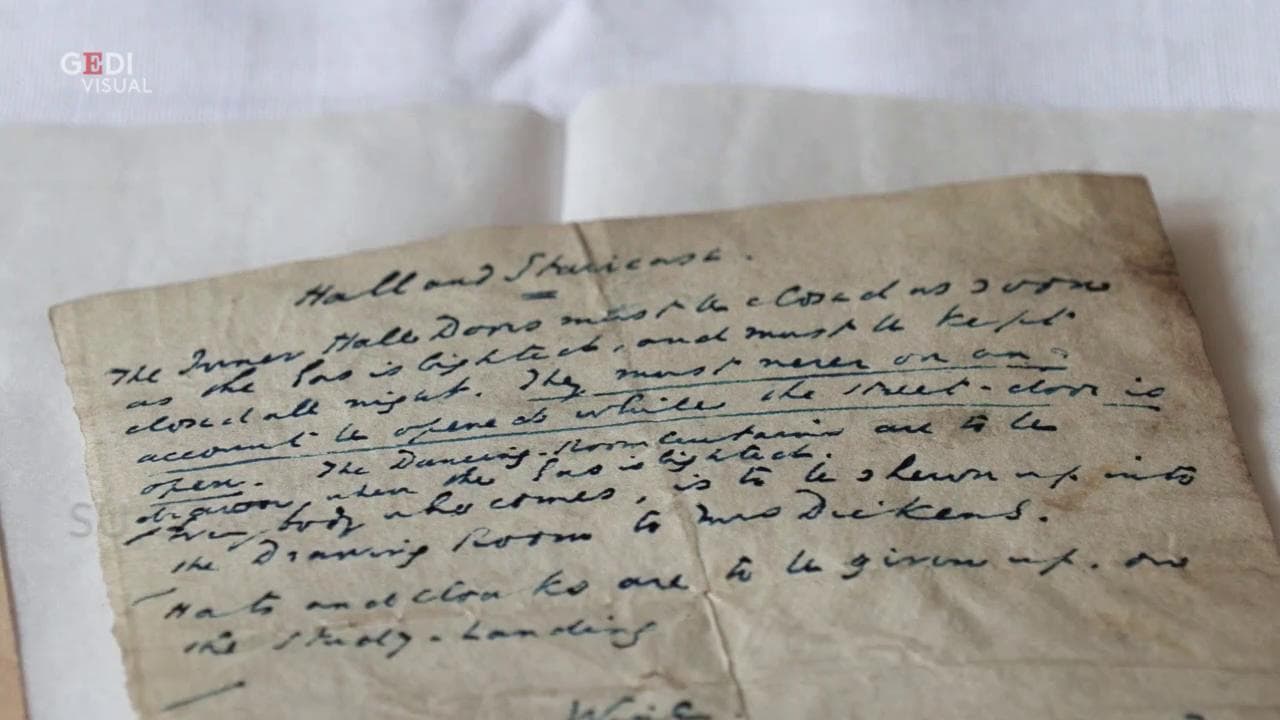 GEDI
VISUAL
Hall and Staircase.
The Inner Hall Doors must be closed as soon
as the Gas is lighted, and must be kept
closed all night. They must never on any
account be opened while the street-door is
open. The Dancing-Room Curtains are to be
drawn, when the Gas is lighted.
Every body who comes, is to be shewn up into
the Drawing Room to Mrs Dickens.
Hats and cloaks are to be given up, on
the Study-Landing